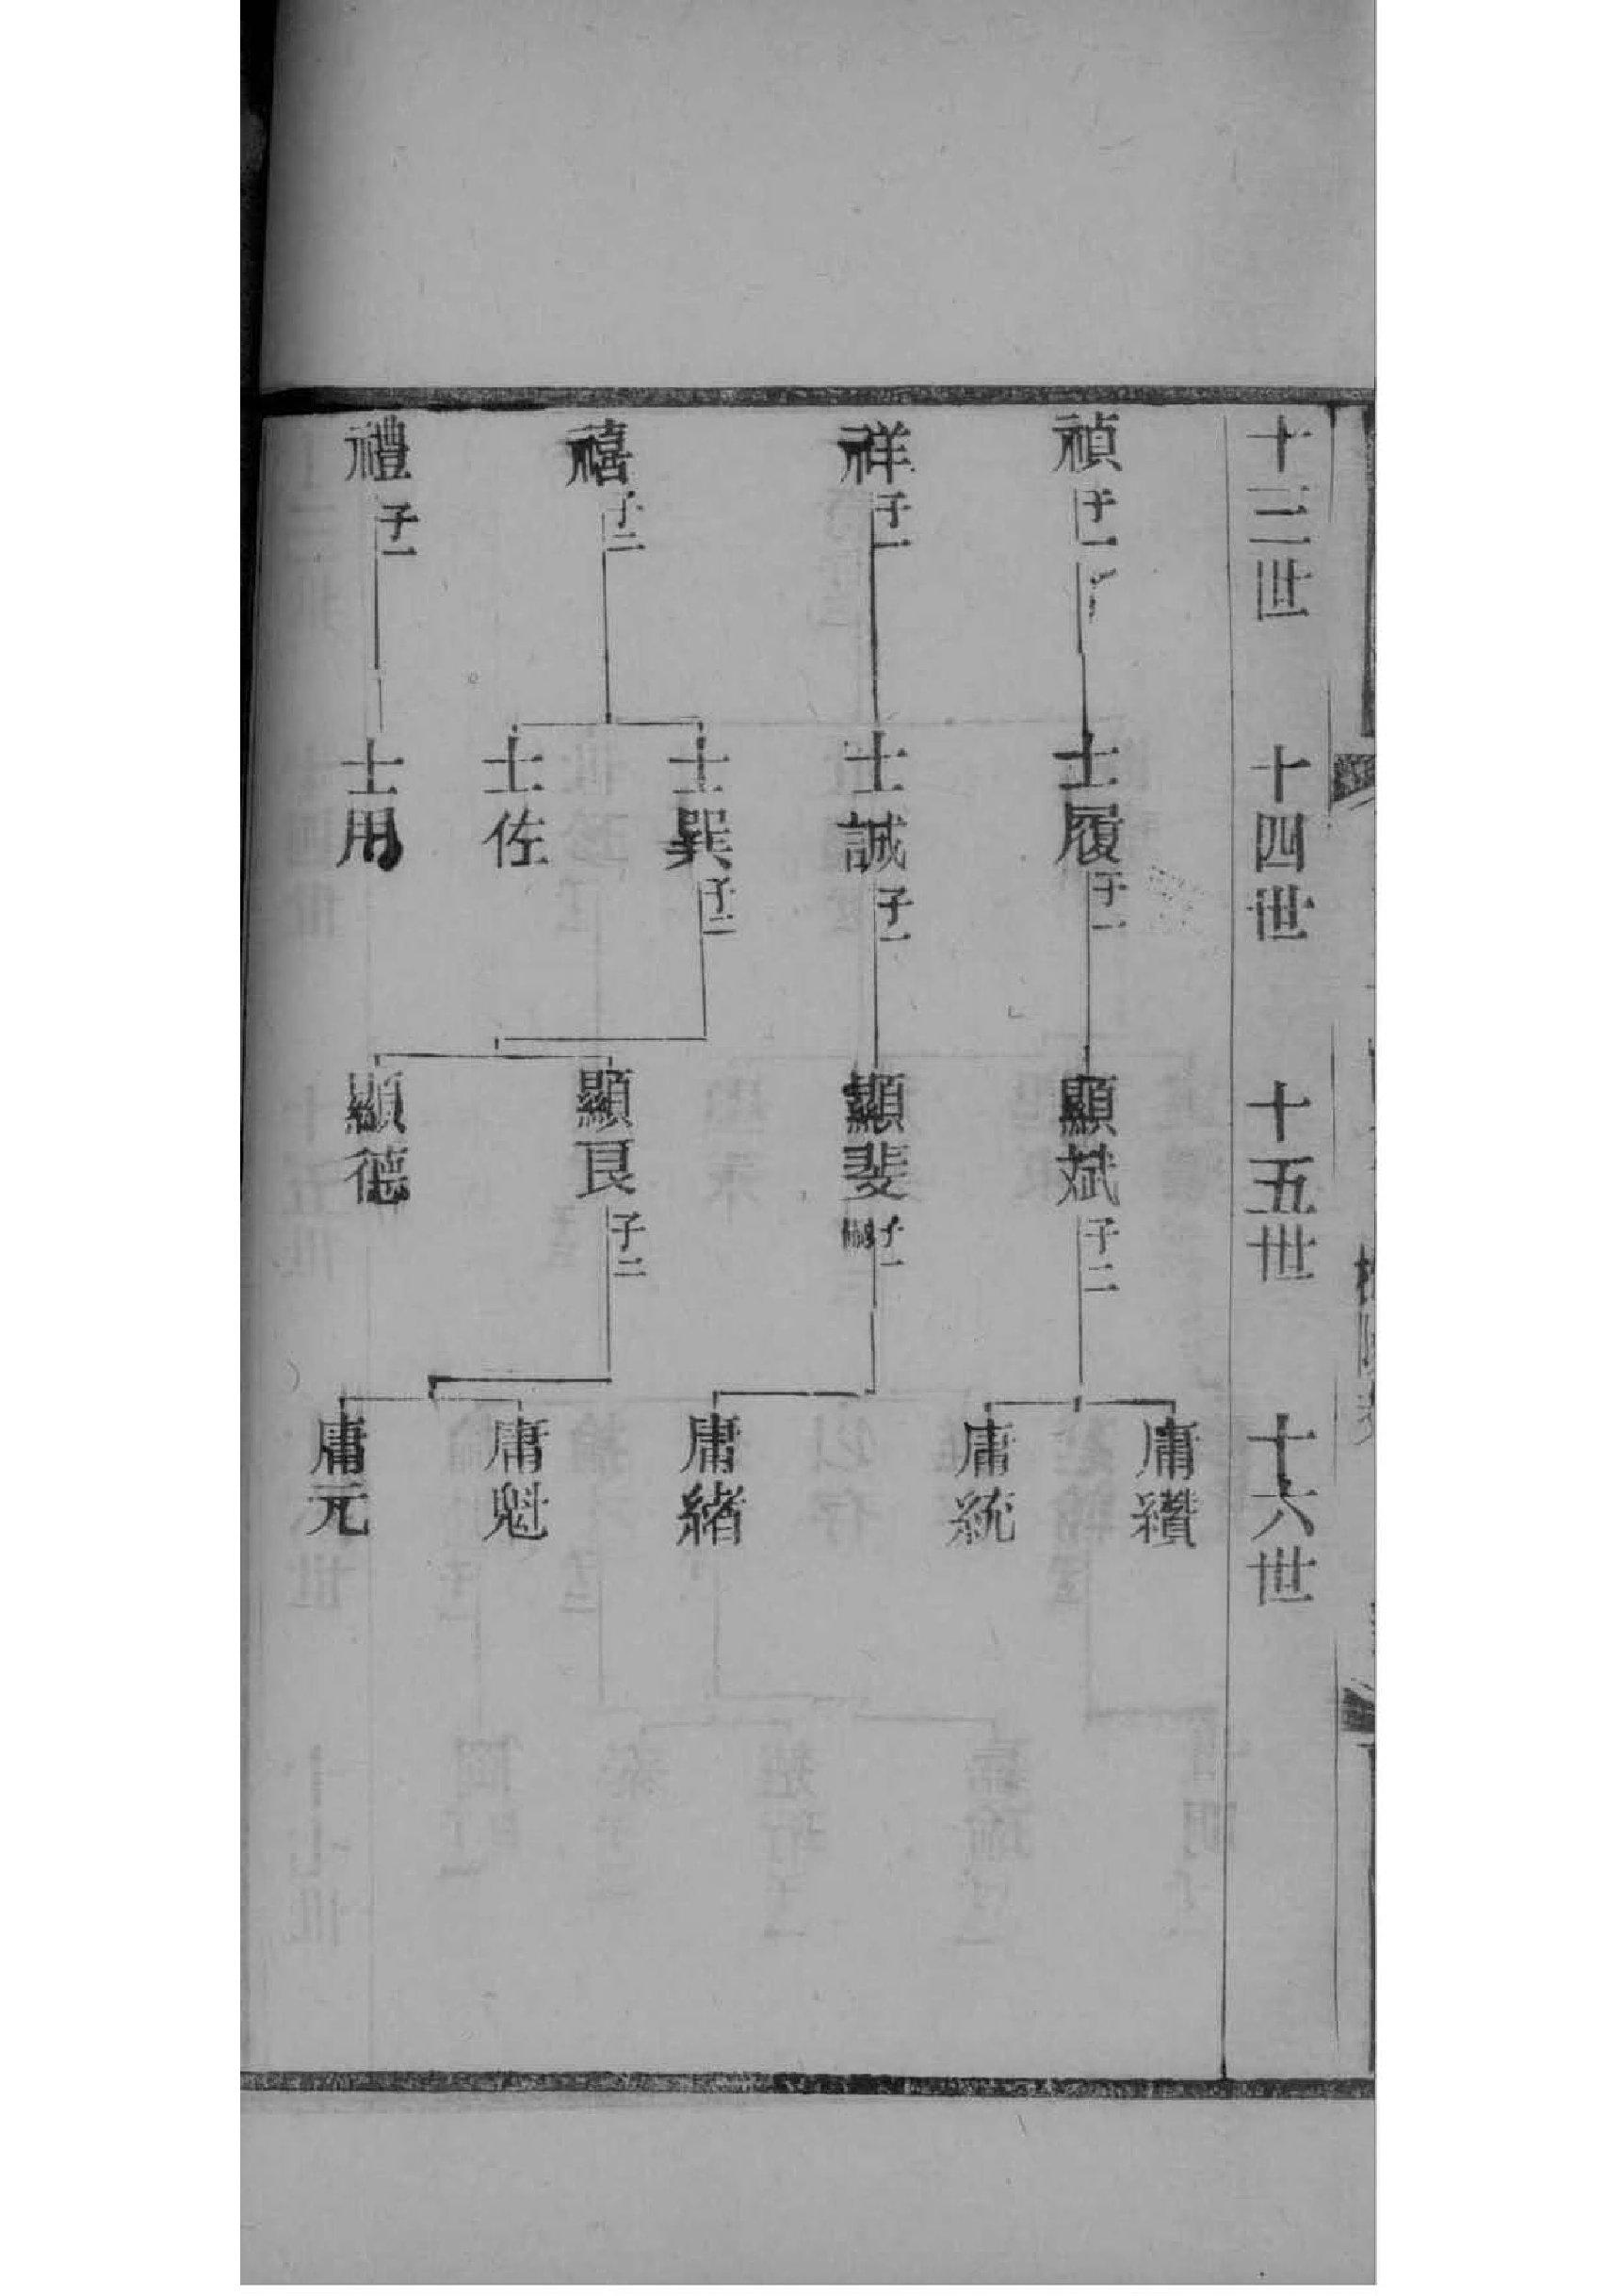 十三世
十四世
十五世
十六世
禎 子一
士履 子一
顯斌 子二
庸纘
庸統
祥 子一
士誠 子一
顯斐 子一
庸緒
禧 子二
士巽 子二
士佐
顯艮 子二
顯德
庸魁
庸元
禮 子一
士用